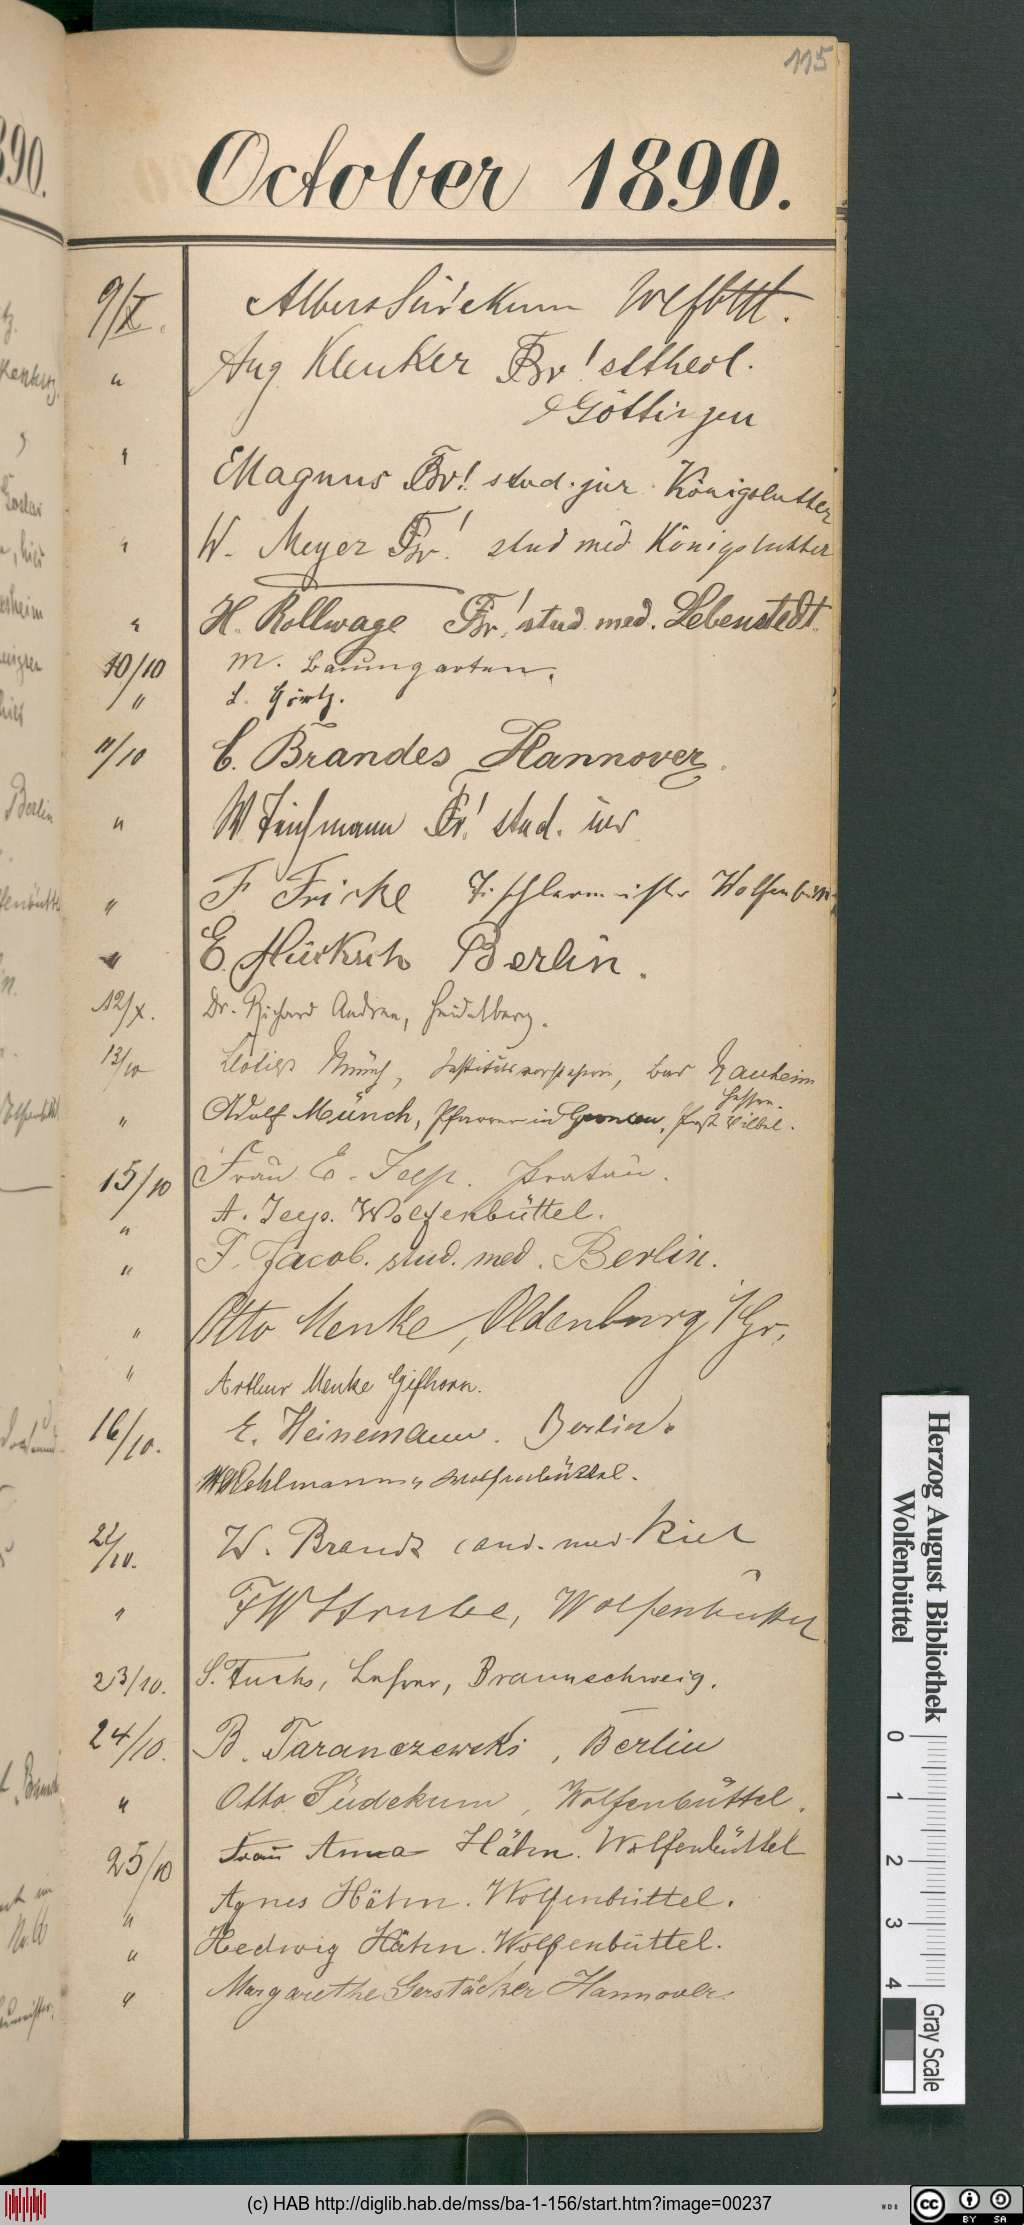 115
October 1890.
9/X. Albert Südekum Wfbttl.
" Aug Klenker Br! st theol.
Göttingen
" E Magnus Br! stud. jur. Königslutter
" W. Meyer Fr! stud med Königslutter
" H. Rollwage Fr! stud. med. Lebenstedt.
10/10 M. Baumgarten.
" L.
11/10 C. Brandes Hannover.
" W. Teichmann Br! stud. iur
" F Fricke Tischlermeister Wolfenbüttel
" E. Berlin.
12/X. Dr. Richard Andree, Heidelberg.
13/10 Münch, Institutsvorsteherin, Bad Nauheim
Hessen.
" Adolf Münch, Pfarrer in Gronau, Post Vilbel.
15/10 Frau E. Jeep.
" A. Jeep. Wolfenbüttel.
" F. Jacob. stud. med. Berlin.
" Otto Menke, Oldenburg i/Gr.
" Arthur Menke Gifhorn.
16/10. E. Heinemann. Berlin.
W. Wehlmann Wolfenbüttel.
22/10. W. Brandt cand. med Kiel
" F W Strube, Wolfenbüttel
23/10. S. Fuchs, Lehrer, Braunschweig.
24/10. B. Taranczewski, Berlin
" Otto Südekum, Wolfenbüttel.
25/10 Frau Anna Hähn. Wolfenbüttel
" Agnes Hähn. Wolfenbüttel.
" Hedwig Hähn. Wolfenbüttel.
" Margarethe Gerstäcker Hannover.
Herzog August Bibliothek
Wolfenbüttel
0 1 2 3 4
Gray Scale
(c) HAB http://diglib.hab.de/mss/ba-1-156/start.htm?image=00237
WDB
CC BY SA